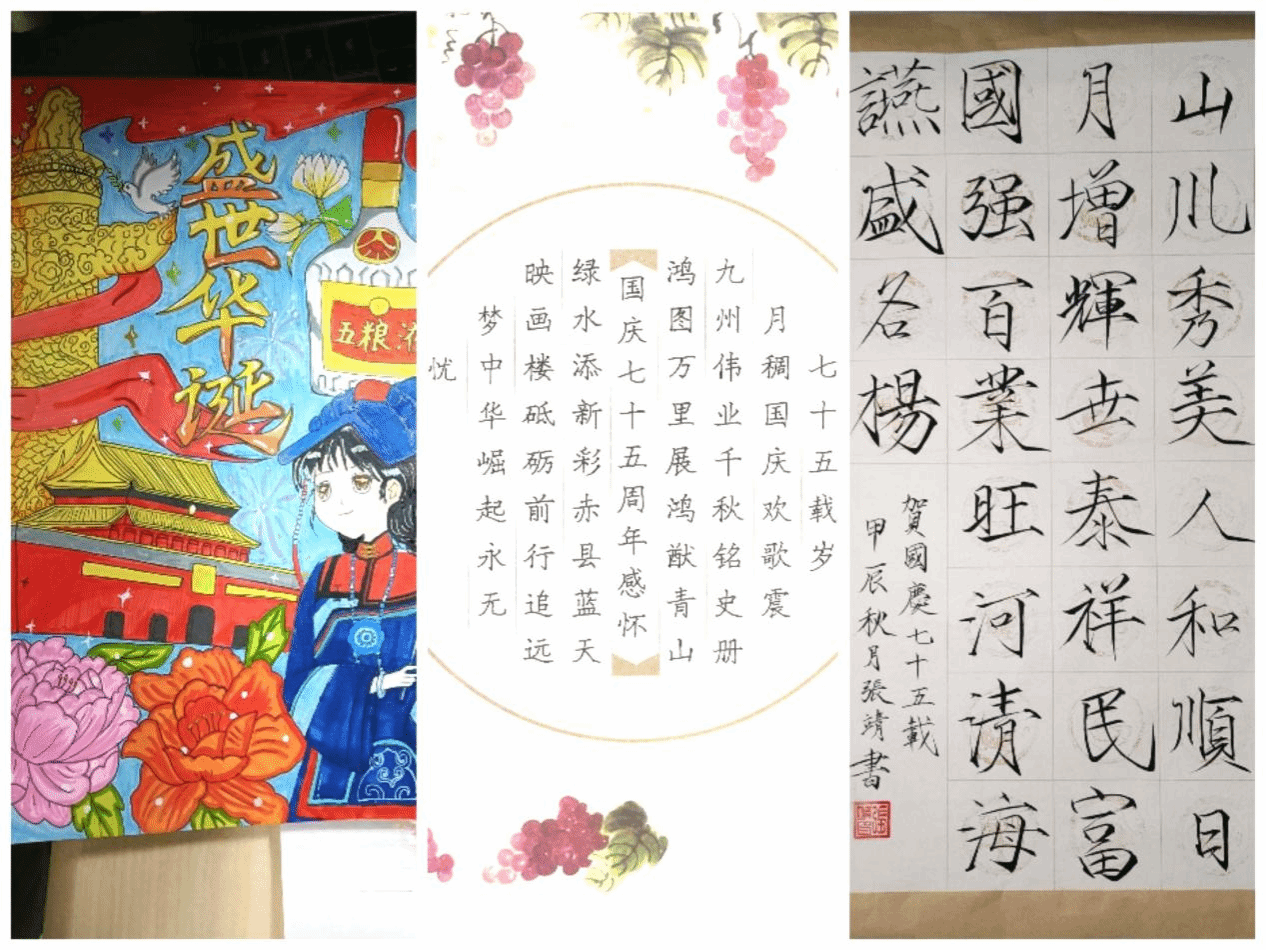 盛世华诞
五粮液
七十五载岁
月稠国庆欢歌震
九州伟业千秋铭史册
鸿图万里展鸿猷青山
国庆七十五周年感怀
绿水添新彩赤县蓝天
映画楼砥砺前行追远
梦中华崛起永无
忧
山川秀美人和順日
月增輝世泰祥民富
國强百業旺河清海
讌盛名楊
賀國慶七十五載
甲辰秋月張靖書